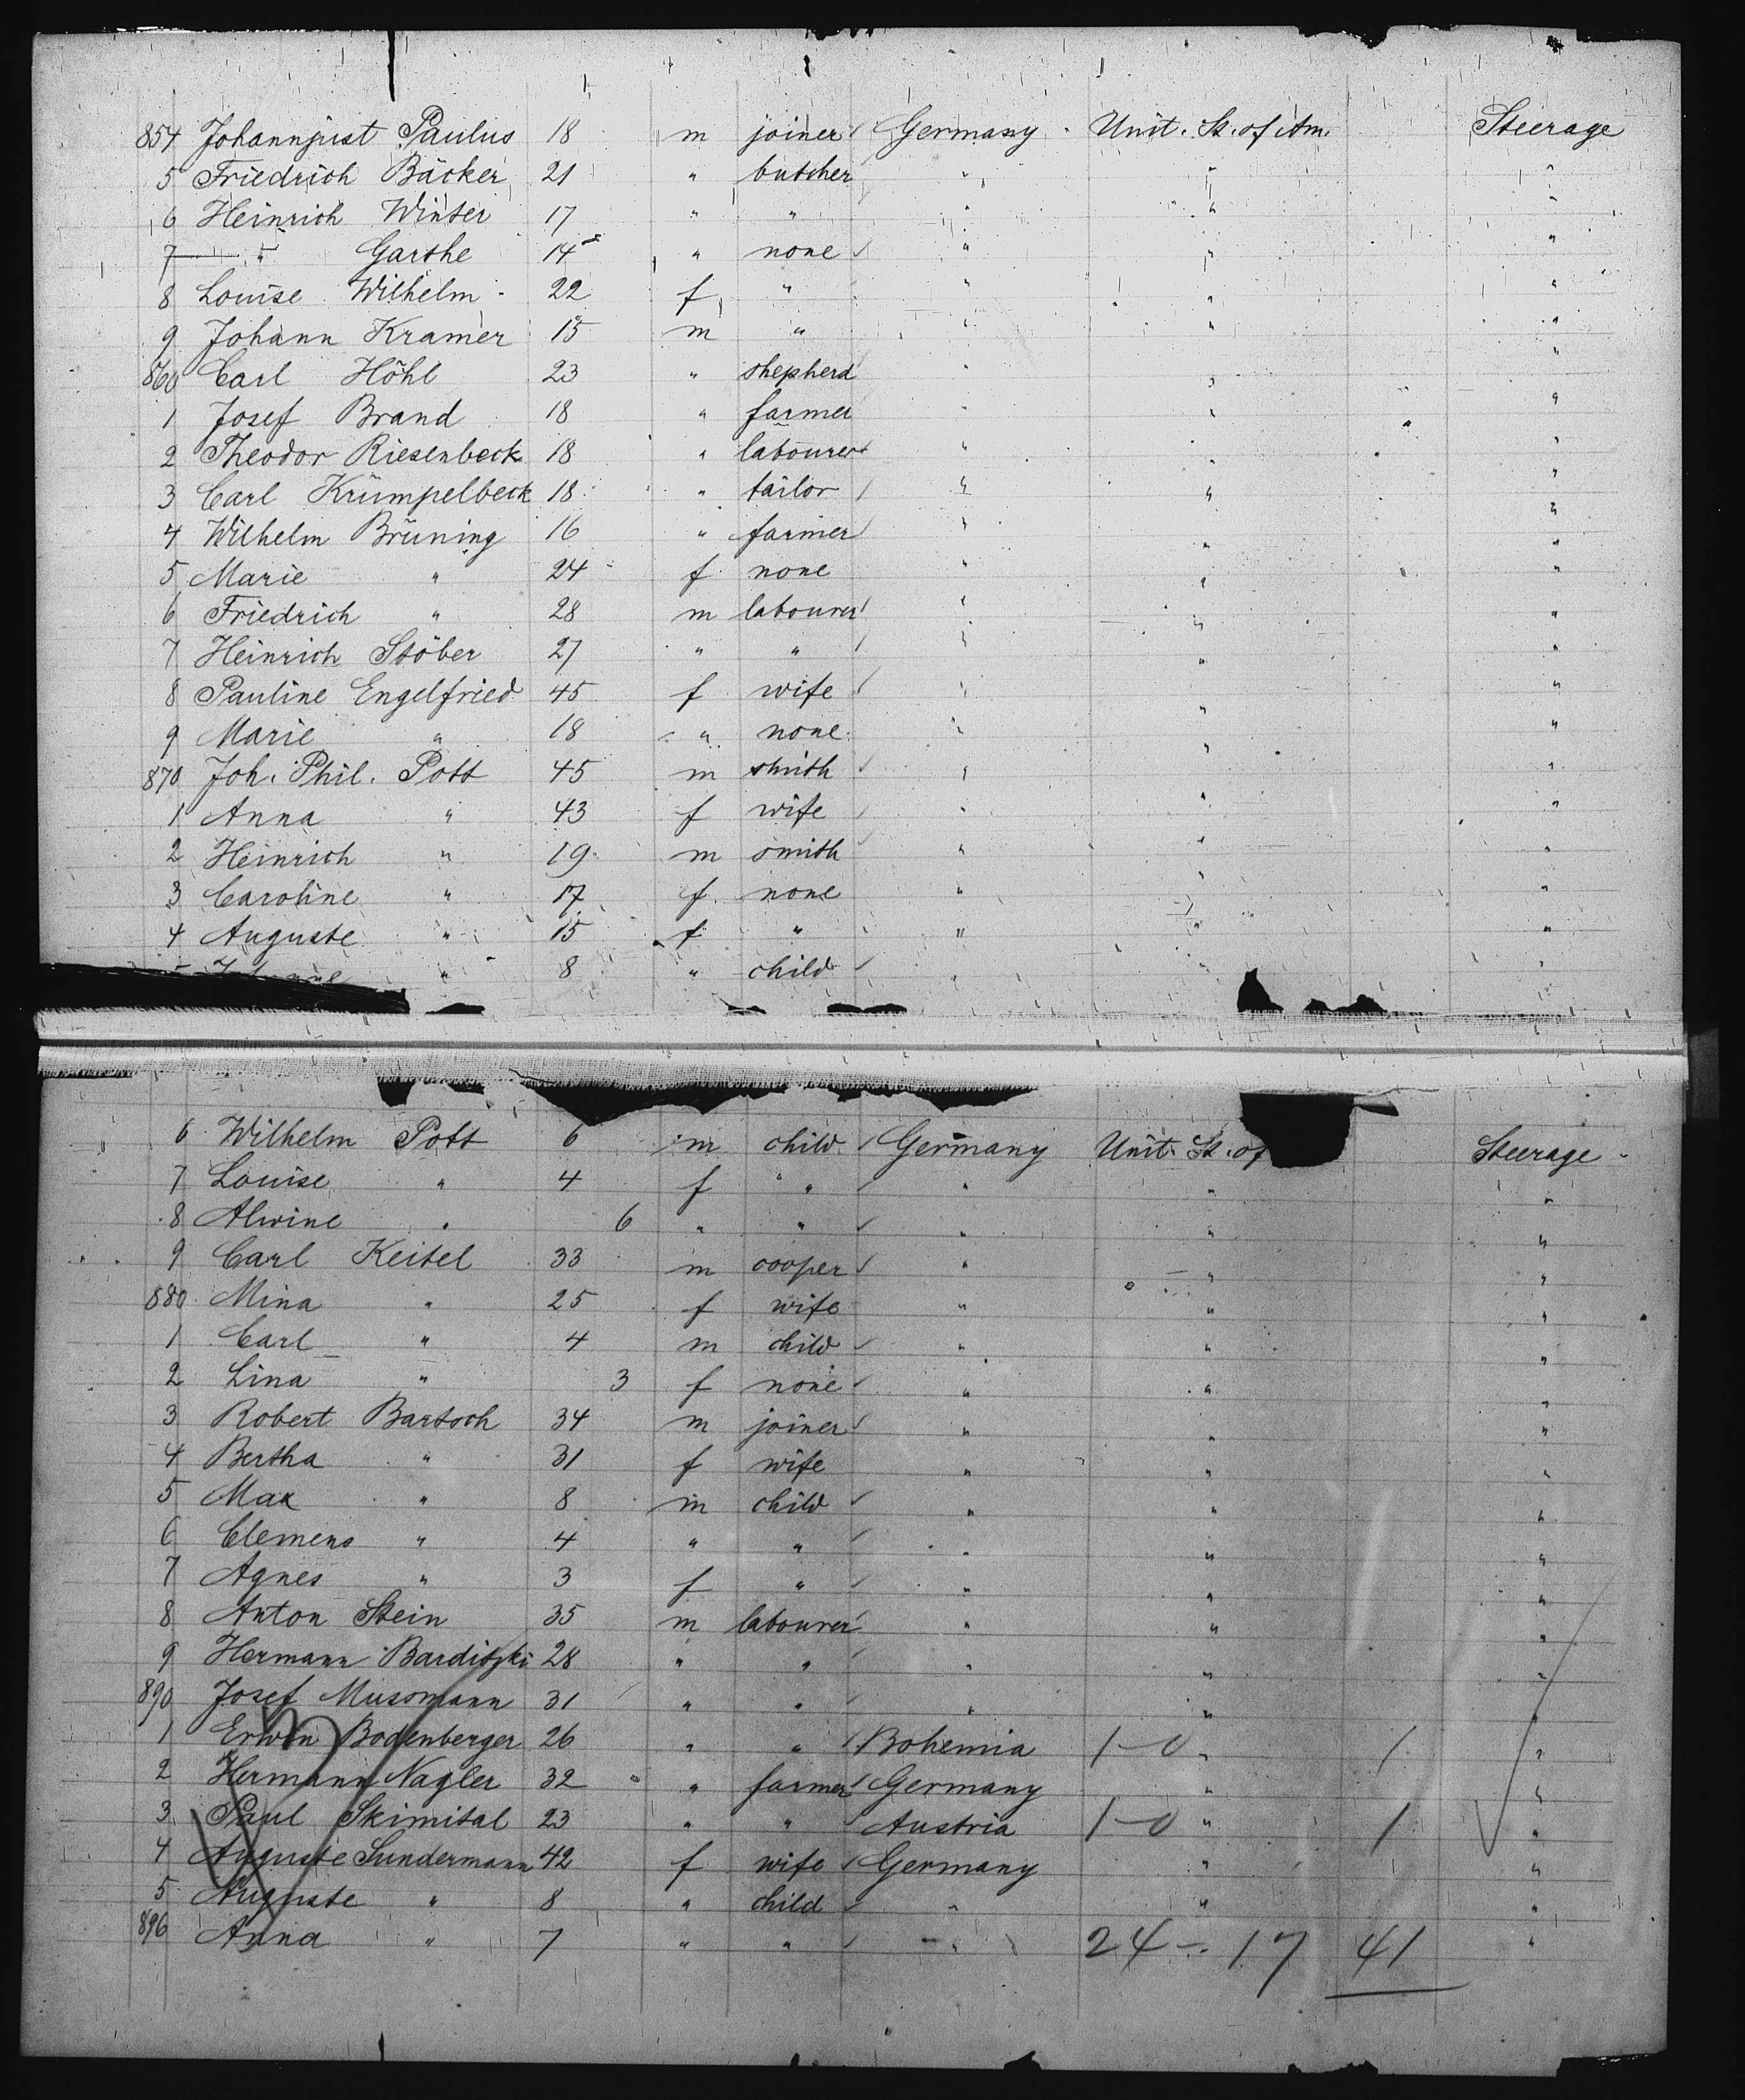 854 Johannjust Paulus 18 m joiner Germany Unit. St. of Am. Steerage
5 Friedrich Bäcker 21 " butcher " " "
6 Heinrich Winter 17 " " " " "
7 " Garthe 14 " none " " "
8 Louise Wilhelm 22 f " " " "
9 Johann Kramer 15 m " " " "
860 Carl Höhl 23 " shepherd " " "
1 Josef Brand 18 " farmer " " "
2 Theodor Riesenbeck 18 " labourer " " "
3 Carl Krümpelbeck 18 " tailor " " "
4 Wilhelm Brüning 16 " farmer " " "
5 Marie " 24 f none " " "
6 Friedrich " 28 m labourer " " "
7 Heinrich Stöber 27 " " " " "
8 Pauline Engelfried 45 f wife " " "
9 Marie " 18 " none " " "
870 Joh. Phil. Pott 45 m smith " " "
1 Anna " 43 f wife " " "
2 Heinrich " 19 m smith " " "
3 Caroline " 17 f none " " "
4 Auguste " 15 f " " " "
" 8 " child " " "
6 Wilhelm Pott 6 m child Germany Unit. St. of Steerage
7 Louise " 4 f " " " "
8 Alwine " 6 " " " " "
9 Carl Keitel 33 m cooper " " "
880 Mina " 25 f wife " " "
1 Carl " 4 m child " " "
2 Lina " 3 f none " " "
3 Robert Bartsch 34 m joiner " " "
4 Bertha " 31 f wife " " "
5 Max " 8 m child " " "
6 Clemens " 4 " " " " "
7 Agnes " 3 f " " " "
8 Anton Stein 35 m labourer " " "
9 Hermann Barditzki 28 " " " " "
890 Josef Mussmann 31 " " " " "
1 Erwin Bodenberger 26 " " Bohemia 1-0 " 1 "
2 Hermann Nagler 32 " farmer Germany " "
3 Paul Skimital 23 " " Austria 1-0 " 1 "
4 Auguste Sundermann 42 f wife Germany " "
5 Auguste " 8 " child " " "
896 Anna " 7 " " " 24-17 41 "